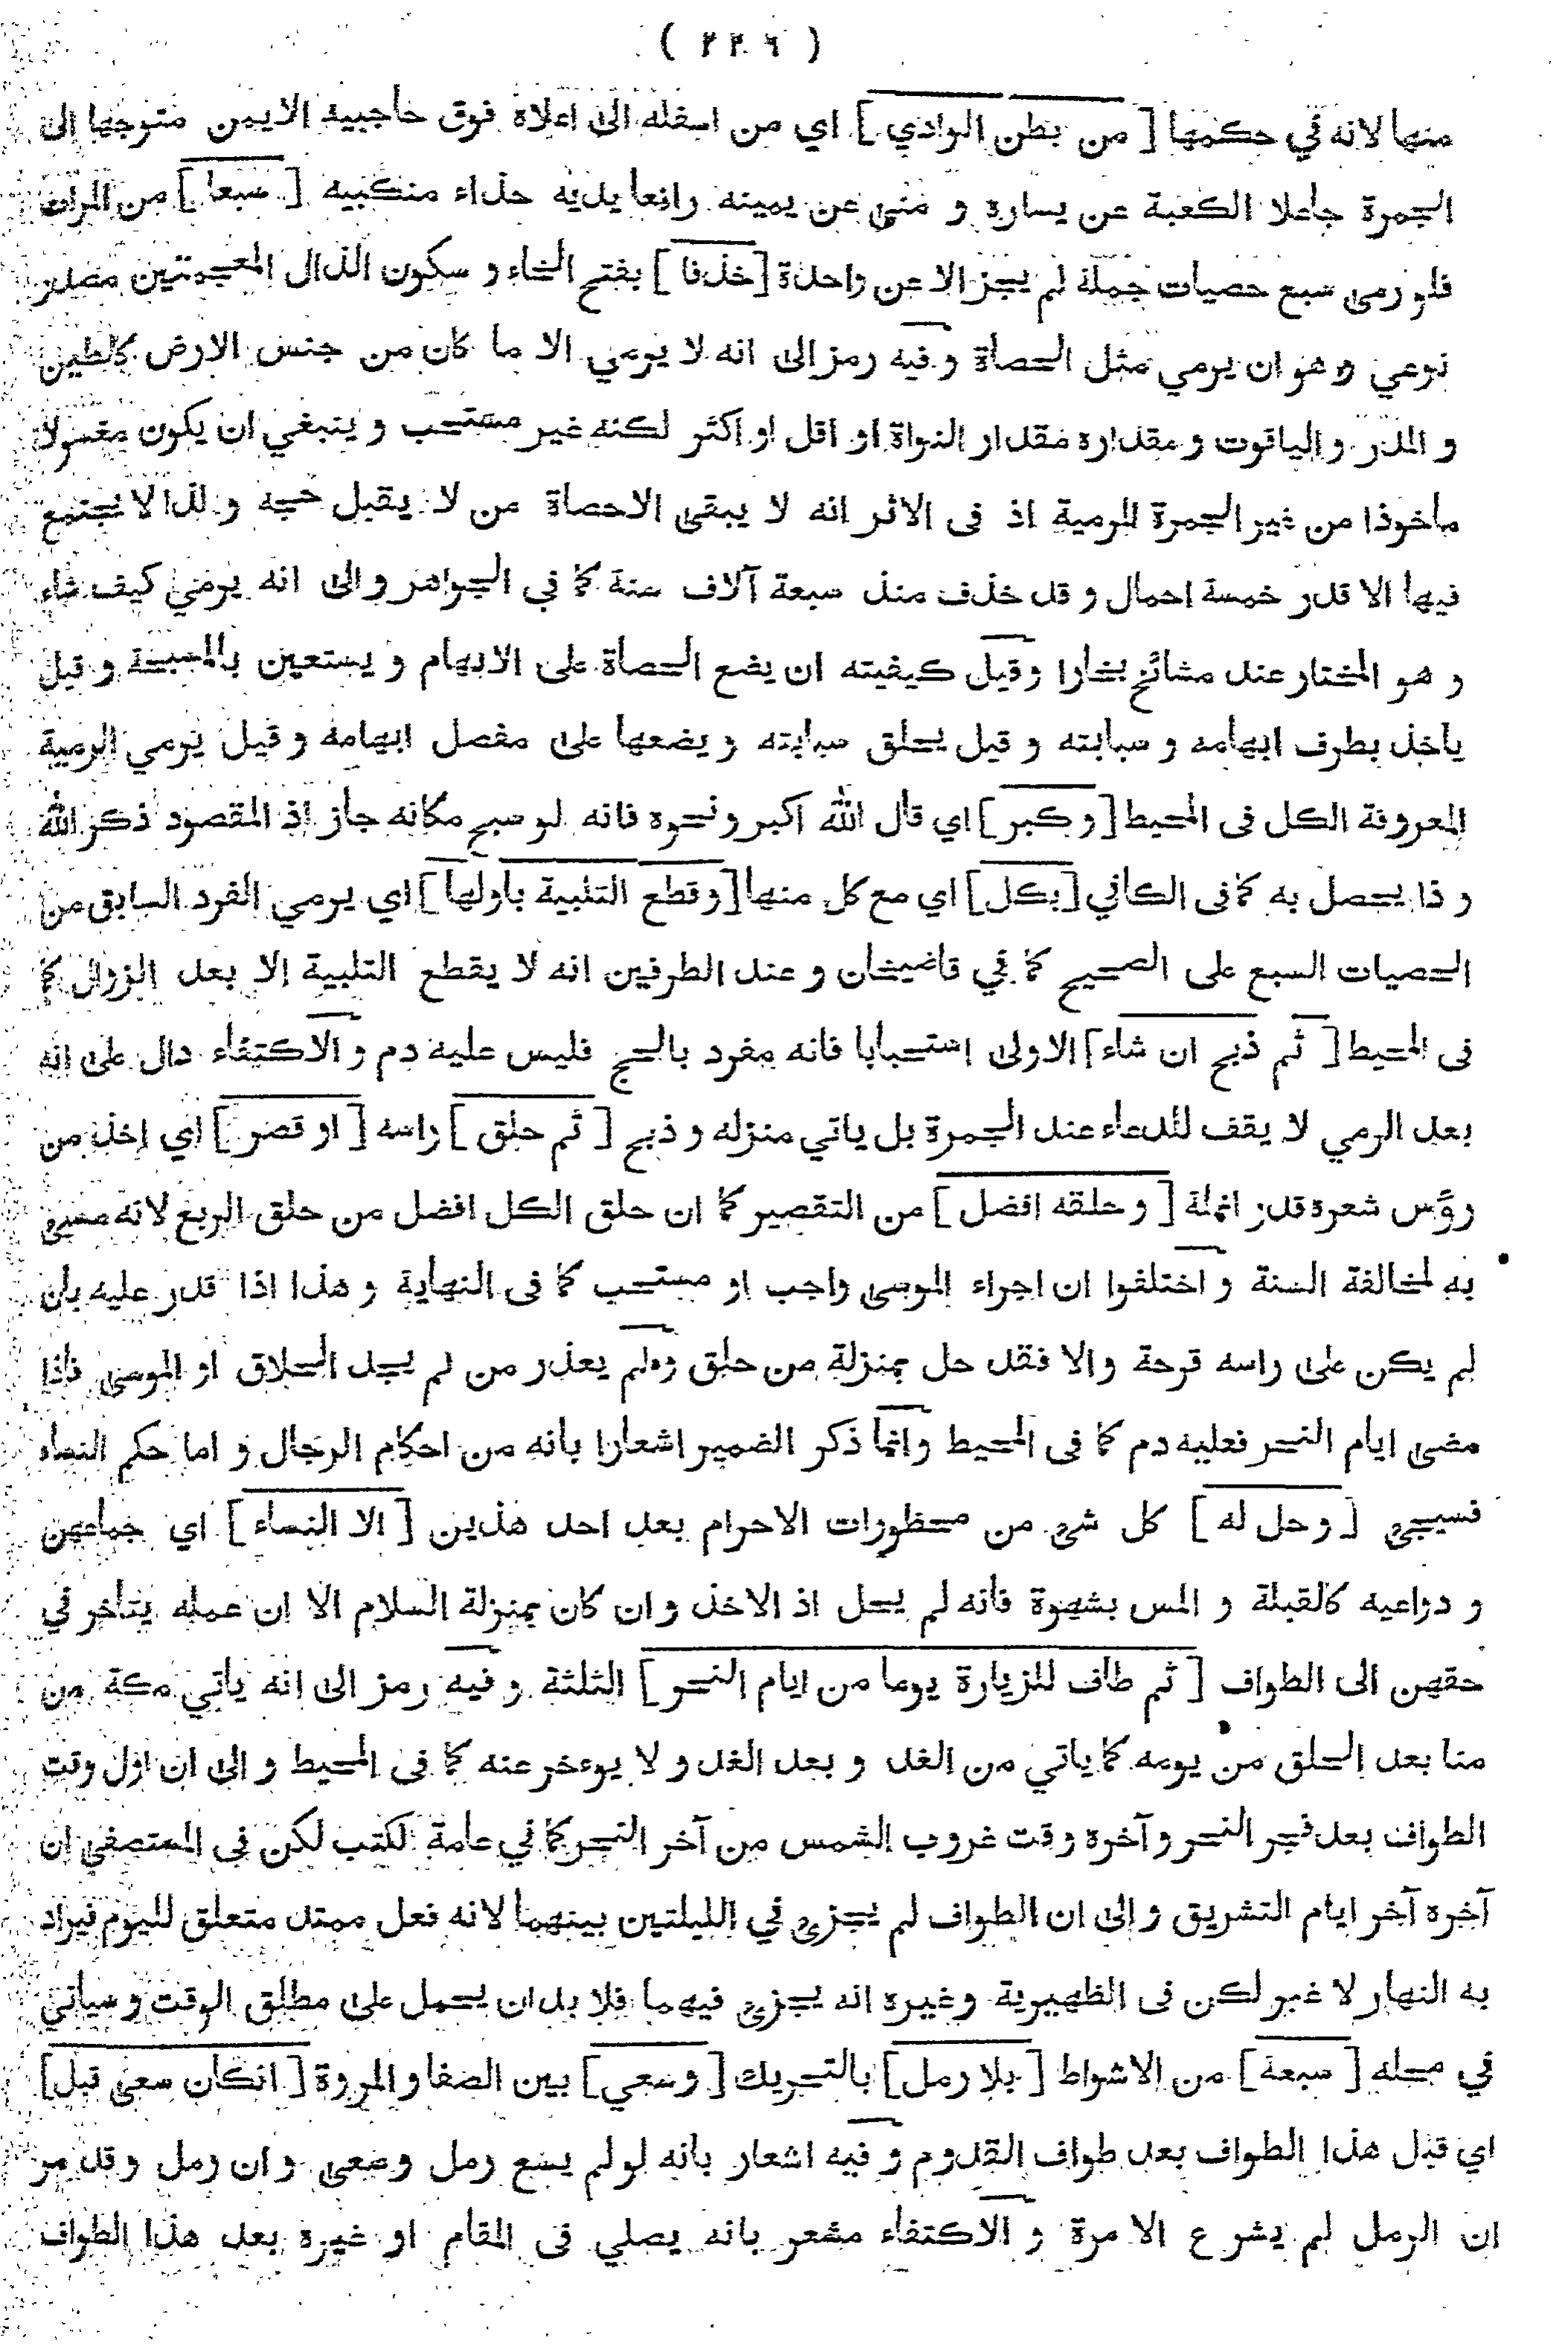 ( ٢٢٦ )
منها لانه في حكمها [ من بطن الوادي ] اي من اسفله الى اعلاه فوق حاجبيه الايمن متوجها الى
الجمرة جاعلا الكعبة عن يساره و منى عن يمينه رافعا يديه حذاء منكبيه [ سبعا ] من المرات
فلو رمى سبع حصيات جملة لم يجز الا عن واحدة [ خذفا ] بفتح الخاء و سكون الذال المعجمتين مصدر
نوعي و هو ان يرمي مثل الحصاة و فيه رمز الى انه لا يومي الا ما كان من جنس الارض كالطين
و المدر و الياقوت و مقداره مقدار النواة او اقل او اكثر لكنه غير مستحب و ينبغي ان يكون مغسولا
ماخوذا من غير الجمرة المرمية اذ فى الاثر انه لا يبقى الاحصاة من لا يقبل حجه و لذا لا يجتمع
فيها الا قدر خمسة احمال و قد خذف منذ سبعة آلاف سنة كما في الجواهر و الى انه يرمي كيف شاء
و هو المختار عند مشائخ بخارا و قيل كيفيته ان يضع الحصاة على الابهام و يستعين بالمسبحة و قيل
ياخذ بطرف ابهامه و سبابته و قيل يحلق سبابته و يضعها على مفصل ابهامه و قيل يرمي الرمية
المعروفة الكل فى المحيط [ و كبر ] اي قال الله اكبر و نحوه فانه لو سبح مكانه جاز اذ المقصود ذكر الله
و ذا يحصل به كما فى الكافي [ بكل ] اي مع كل منها [ و قطع التلبية باولها ] اي يرمي الفرد السابق من
الحصيات السبع على الصحيح كما في قاضيخان و عند الطرفين انه لا يقطع التلبية إلا بعد الزوال كما
فى المحيط [ ثم ذبح ان شاء ] الاولى استحبابا فانه مفرد بالحج فليس عليه دم و الاكتفاء دال على انه
بعد الرمي لا يقف للدعاء عند الجمرة بل ياتي منزله و ذبح [ ثم حلق ] راسه [ او قصر ] اي اخذ من
روّس شعره قدر انملة [ و حلقه افضل ] من التقصير كما ان حلق الكل افضل من حلق الربع لانه مسيئ
به لمخالفة السنة و اختلفوا ان اجراء الموسى واجب او مستحب كما فى النهاية و هذا اذا قدر عليه بان
لم يكن على راسه قرحة والا فقد حل بمنزلة من حلق و لم يعذر من لم يجد الحلاق او الموسى فاذا
مضى ايام النحر فعليه دم كما فى المحيط و انما ذكر الضمير اشعارا بانه من احكام الرجال و اما حكم النساء
فسيجئ [ و حل له ] كل شئ من محظورات الاحرام بعد احد هذين [ الا النساء ] اي جماعهن
و دواعيه كالقبلة و المس بشهوة فانه لم يحل اذ الاخذ و ان كان بمنزلة السلام الا ان عمله يتاخر في
حقهن الى الطواف [ ثم طاف للزيارة يوما من ايام النحر ] الثلثة و فيه رمز الى انه ياتي مكة من
منا بعد الحلق من يومه كما ياتي من الغد و بعد الغد و لا يوءخر عنه كما فى المحيط و الى ان اول وقت
الطواف بعد فجر النحر و آخره وقت غروب الشمس من آخر النحر كما في عامة الكتب لكن فى المستصفى ان
آخره آخر ايام التشريق و الى ان الطواف لم يجزئ في الليلتين بينهما لانه فعل ممتد متعلق لليوم فيراد
به النهار لا غير لكن فى الظهيرية و غيره انه يجزئ فيهما فلا بد ان يحمل على مطلق الوقت و سياتي
في محله [ سبعة ] من الاشواط [ بلا رمل ] بالتحريك [ و سعي ] بين الصفا و المروة [ انكان سعى قبل ]
اي قبل هذا الطواف بعد طواف القدوم و فيه اشعار بانه لو لم يسع رمل و سعى و ان رمل و قد مر
ان الرمل لم يشر ع الا مرة و الاكتفاء مشعر بانه يصلي فى المقام او غيره بعد هذا الطواف